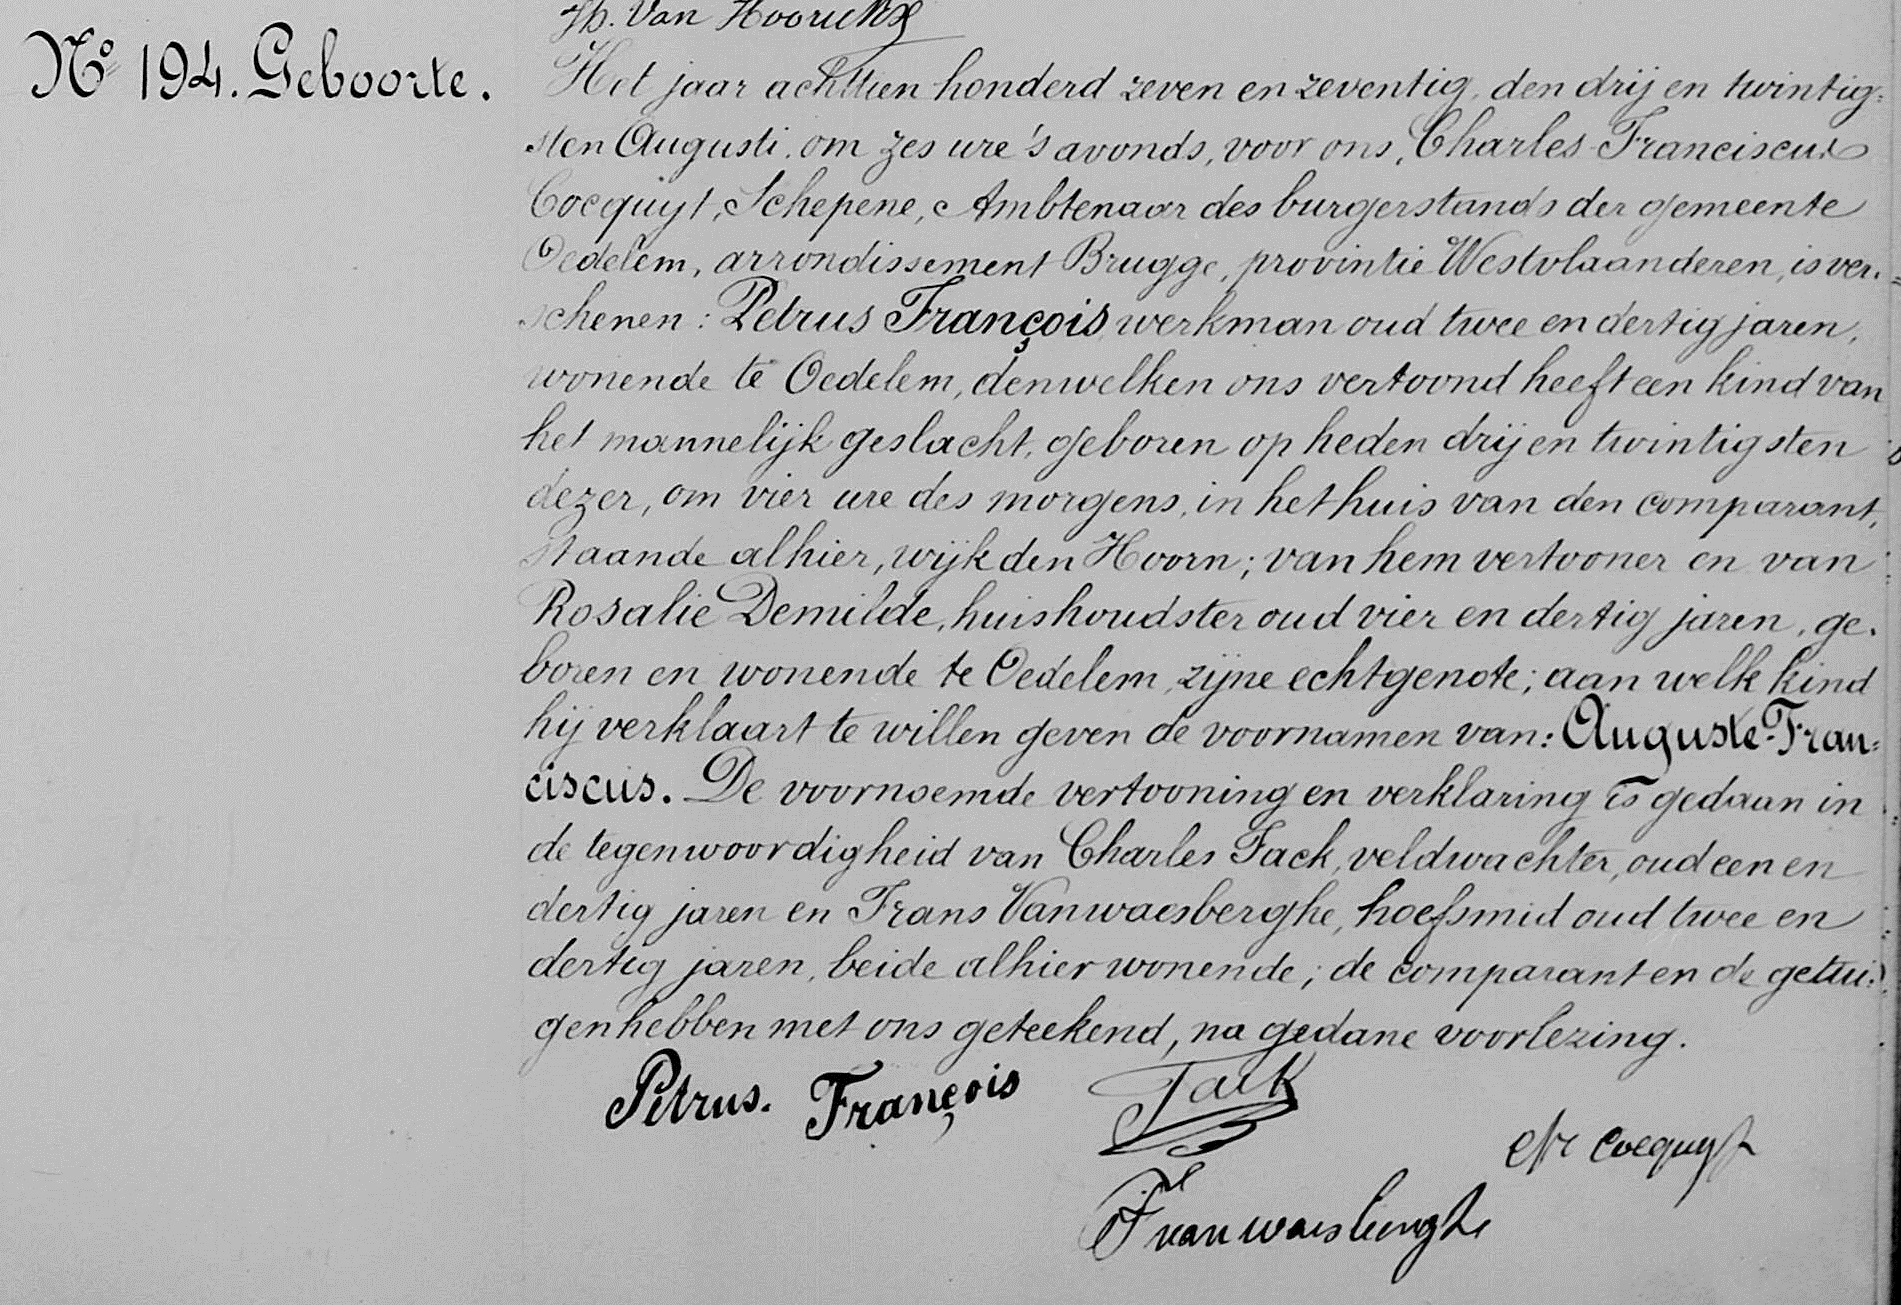 Jb. Van Hoorickx
Nº 194. Geboorte.
Het jaar achttien honderd zeven en zeventig, den drij en twintig=
sten Augusti, om zes ure 's avonds, voor ons, Charles Franciscus
Cocquyt, Schepene, Ambtenaar des burgerstands der gemeente
Oedelem, arrondissement Brugge, provintie Westvlaanderen, is ver=
schenen: Petrus François werkman oud twee en dertig jaren,
wonende te Oedelem, denwelken ons vertoond heeft een kind van
het mannelijk geslacht, geboren op heden drij en twintigsten
dezer, om vier ure des morgens, in het huis van den comparant,
staande alhier, wijk den Hoorn; van hem vertooner en van
Rosalie Demilde, huishoudster oud vier en dertig jaren, ge=
boren en wonende te Oedelem, zijne echtgenote; aan welk kind
hij verklaart te willen geven de voornamen van: Auguste-Fran=
ciscus. De voornoemde vertooning en verklaring is gedaan in
de tegenwoordigheid van Charles Tack, veldwachter, oud een en
dertig jaren en Frans Vanwaesberghe, hoefsmid oud twee en
dertig jaren, beide alhier wonende; de comparant en de getui=
gen hebben met ons geteekend, na gedane voorlezing.
Petrus. François Tack
Cocquyt
F vanwaesberghe